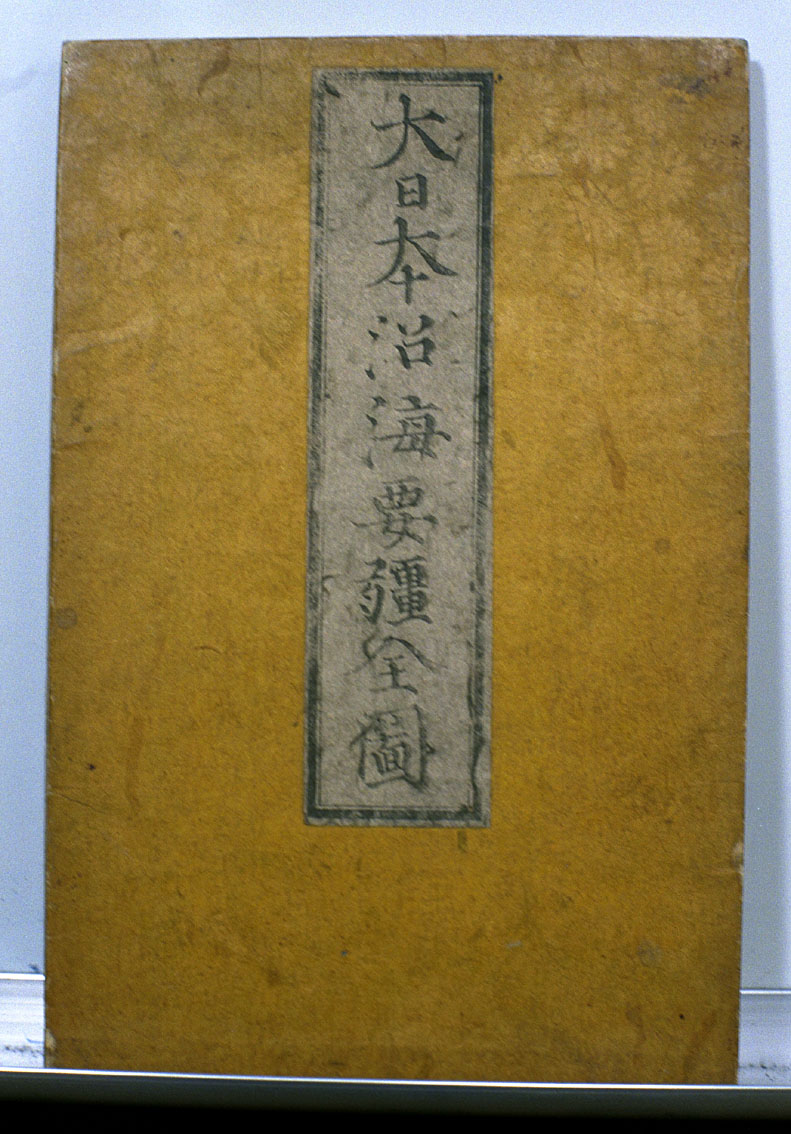 大日本沿海要疆全圖